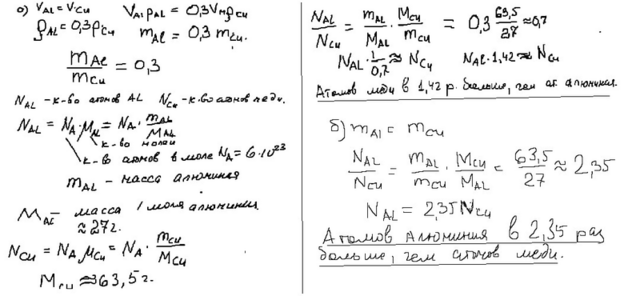 а) V_Al = V_Cu V_Al ρ_Al = 0,3 V_Cu ρ_Cu
ρ_Al = 0,3 ρ_Cu m_Al = 0,3 m_Cu.
m_Al / m_Cu = 0,3
N_AL - к-во атомов AL N_Cu - к-во атомов меди.
N_AL = N_A · μ_AL = N_A · m_AL / M_AL
к-во молей
к-во атомов в моле N_A = 6·10²³
m_AL - масса алюминия
M_AL - масса 1 моля алюминия.
≈ 27г.
N_Cu = N_A μ_Cu = N_A · m_Cu / M_Cu
M_Cu ≈ 63,5 г.
N_AL / N_Cu = m_AL / M_AL · M_Cu / m_Cu = 0,3 63,5 / 27 ≈ 0,7
N_AL · 1 / 0,7 ≈ N_Cu N_Al · 1,42 ≈ N_Cu
Атомов меди в 1,42 р. больше, чем ат алюминия.
б) m_Al = m_Cu
N_AL / N_Cu = m_AL / m_Cu · M_Cu / M_AL = 63,5 / 27 ≈ 2,35
N_AL = 2,35 N_Cu
Атомов алюминия в 2,35 раз
больше, чем атомов меди.